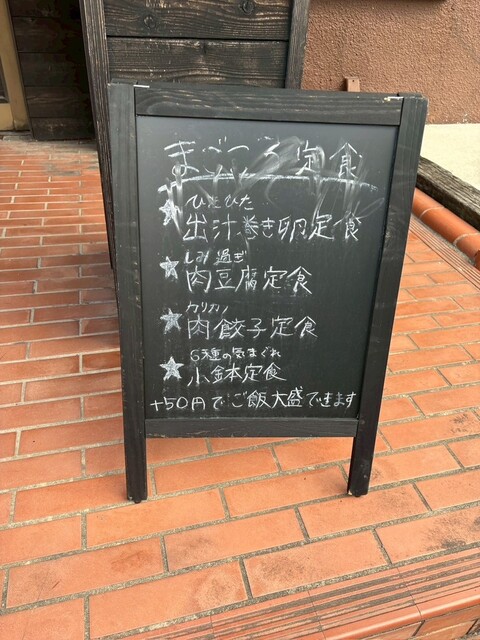 まべつる定食
ひたひた
出汁巻き卵定食
しみ過ぎ
肉豆腐定食
カリカリ
肉餃子定食
6種の気まぐれ
小鉢定食
+50円でご飯大盛できます